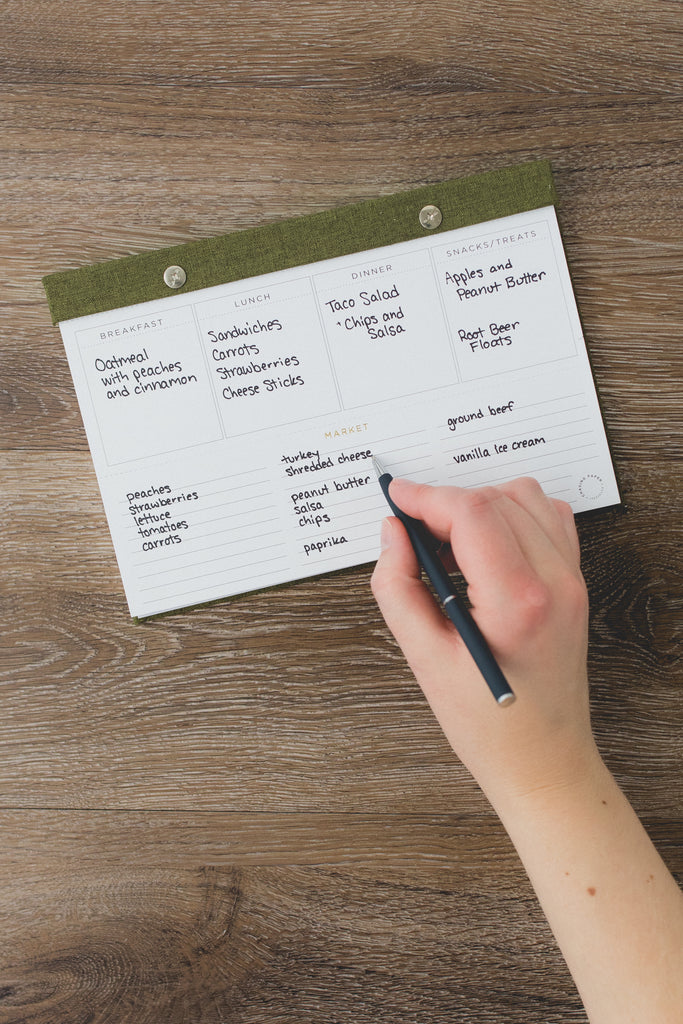 BREAKFAST
Oatmeal
with peaches
and cinnamon
LUNCH
Sandwiches
Carrots
Strawberries
Cheese Sticks
DINNER
Taco Salad
Chips and
Salsa
SNACKS/TREATS
Apples and
Peanut Butter
Root Beer
Floats
MARKET
peaches
strawberries
lettuce
tomatoes
carrots
turkey
shredded cheese
peanut butter
salsa
chips
paprika
ground beef
vanilla Ice cream